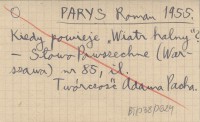 PARYS Roman 1955.
Kiedy powieje „Wiatr halny"?
- Słowo Powszechne (War-
szawa) nr 85, il.
Twórczość Adama Pacha.